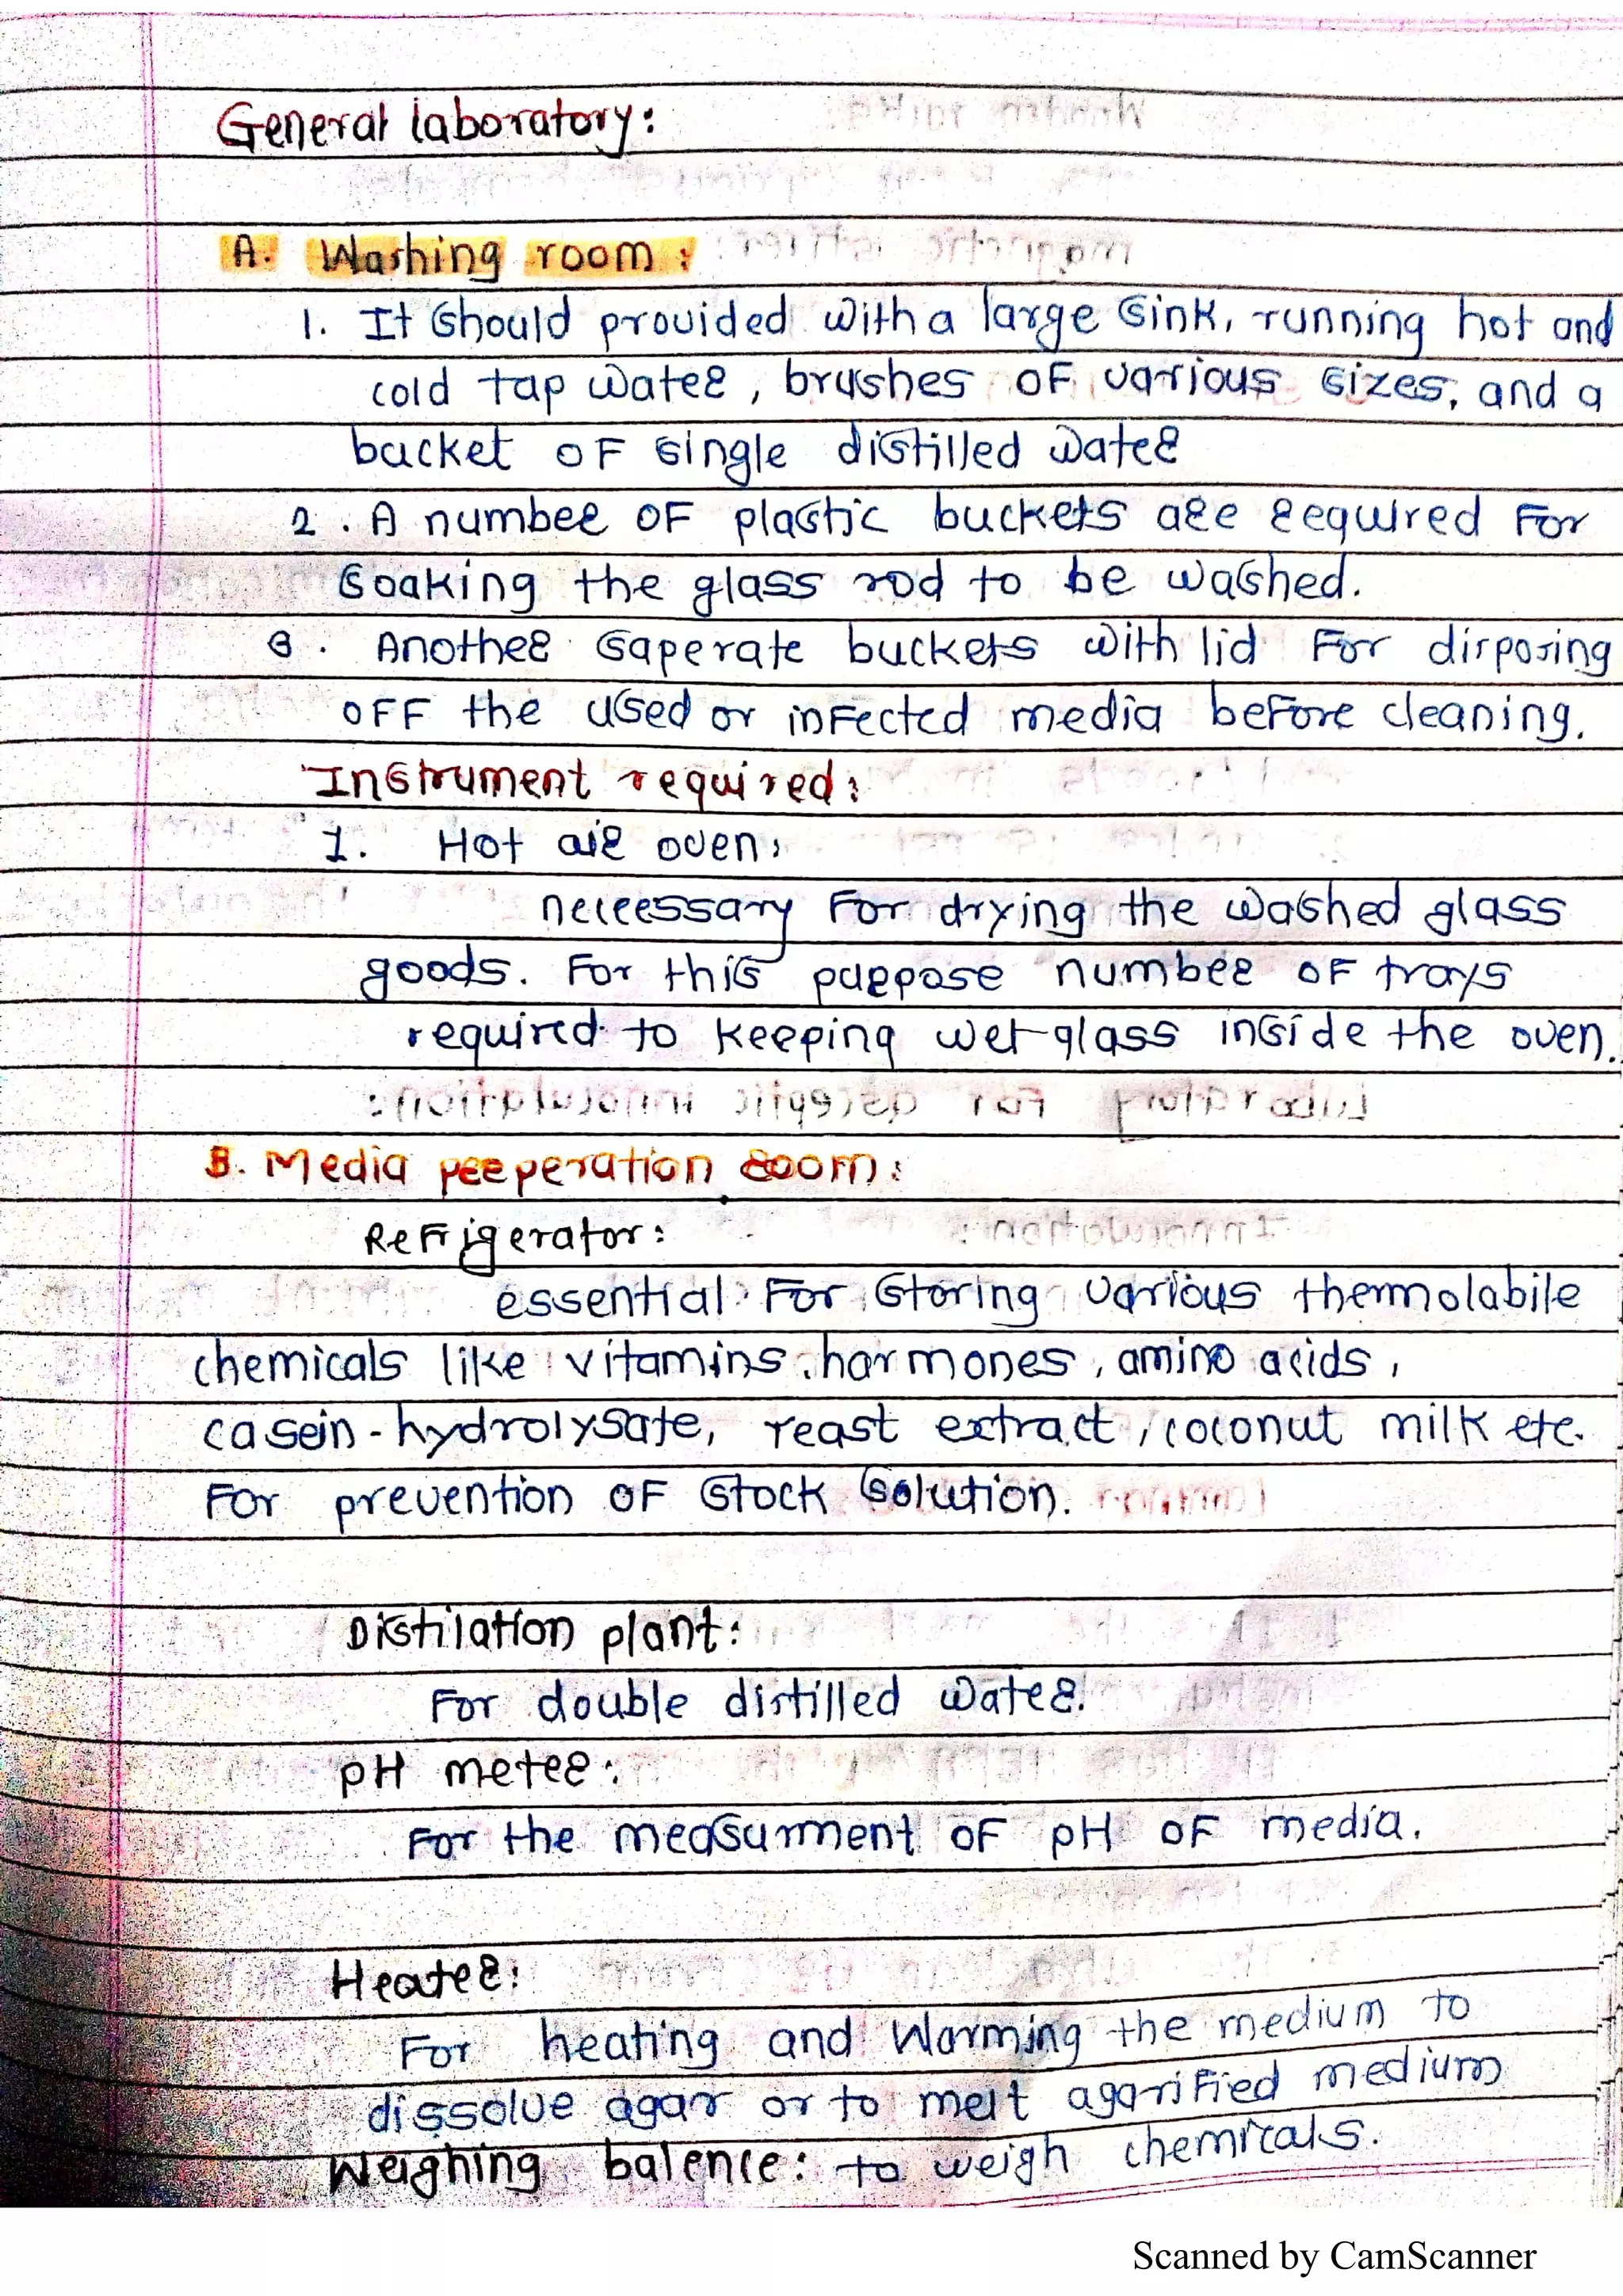 General laboratory:
A. Washing room :
1. It should provided with a large sink, running hot and
cold tap water, brushes of various sizes, and a
bucket of single distilled water
2. A number of plastic buckets are required for
soaking the glass rod to be washed.
3. Another saperate buckets with lid for disposing
off the used or infected media before cleaning.
Instrument required:
1. Hot air oven:
neceessary for drying the washed glass
goods. For this purpose number of trays
required to keeping wet glass inside the oven.
B. Media preperation room:
Refrigerator:
essential for storing various thermolabile
chemicals like vitamins, hormones, amino acids,
casein-hydrolysate, yeast extract, coconut milk etc.
For prevention of stock solution.
Distilation plant:
For double distilled water.
pH meter:
For the measurment of pH of media.
Heater:
For heating and warming the medium to
dissolve agar or to melt agarified medium
Weighing balence: to weigh chemicals.
Scanned by CamScanner